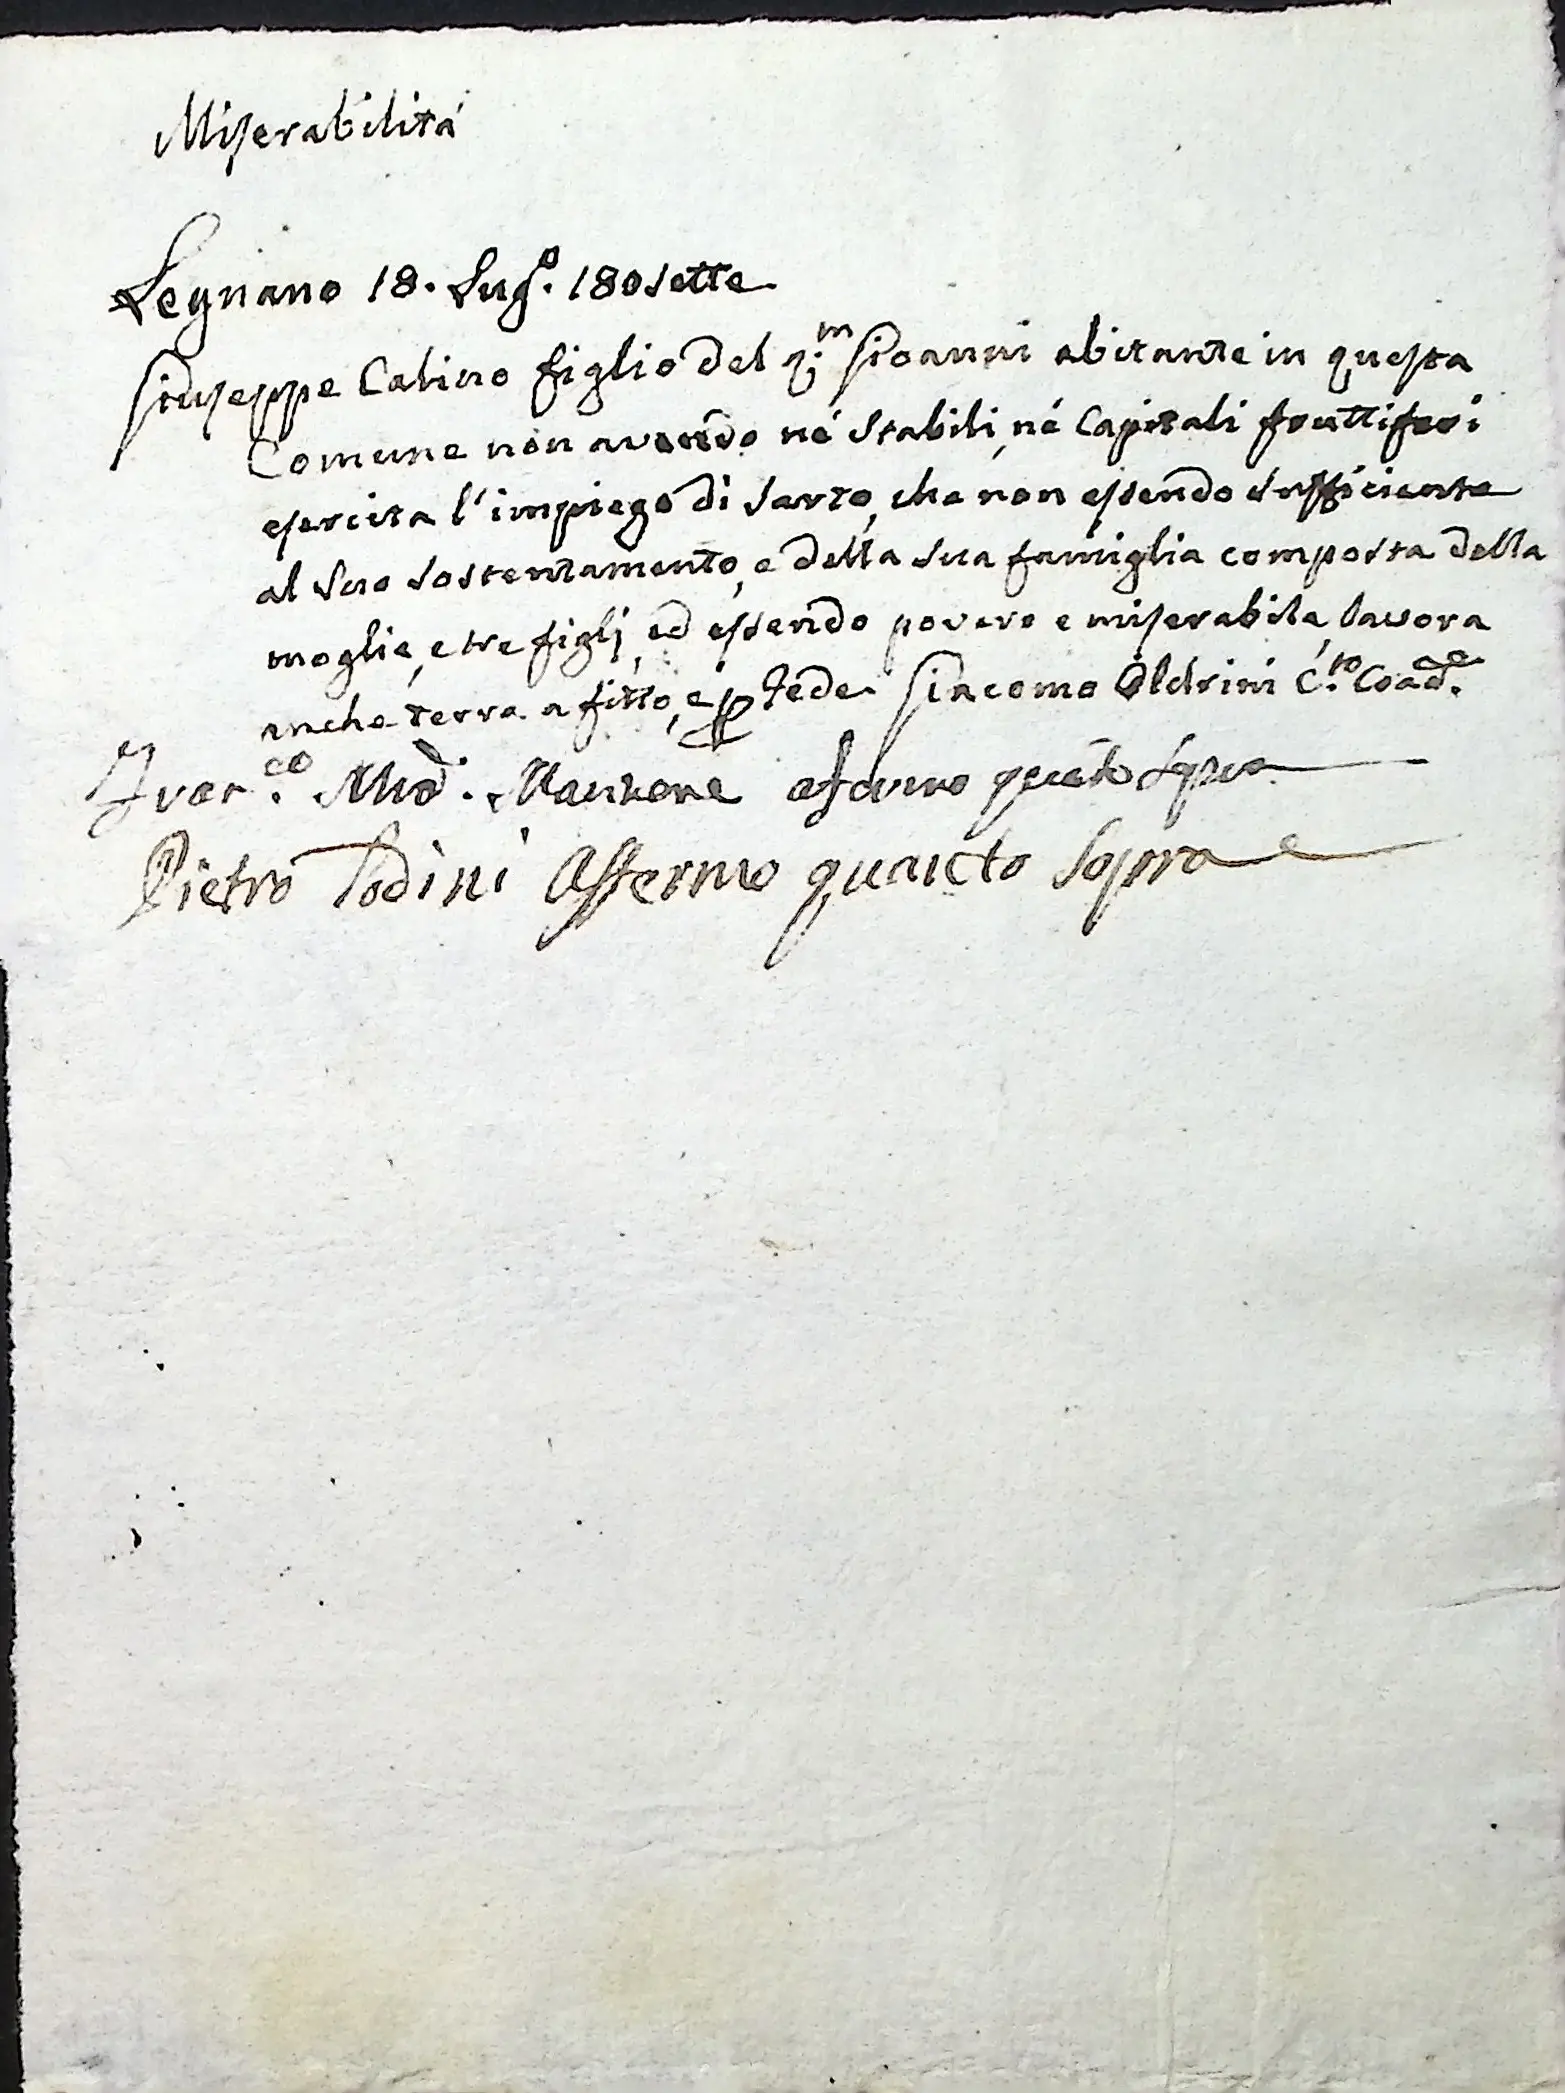 Miserabilitá
Legnano 18. Lug.o 180sette
Giuseppe Calino figlio del q.m Gioanni abitante in questa
Comune non avendo né Stabili, né Capitali fruttiferi
esercita l'impiego di Sarto, che non essendo Sufficiente
al Suo Sostentamento, e della Sua famiglia composta della
moglie, e tre figli, ed essendo povero e miserabile, lavora
anche terra a fitto, e p fede Giacomo Oldrini C.to Coad.e
Franc.co Manzone afermo quanto Sopra
Pietro Todini Affermo quancto Sopra